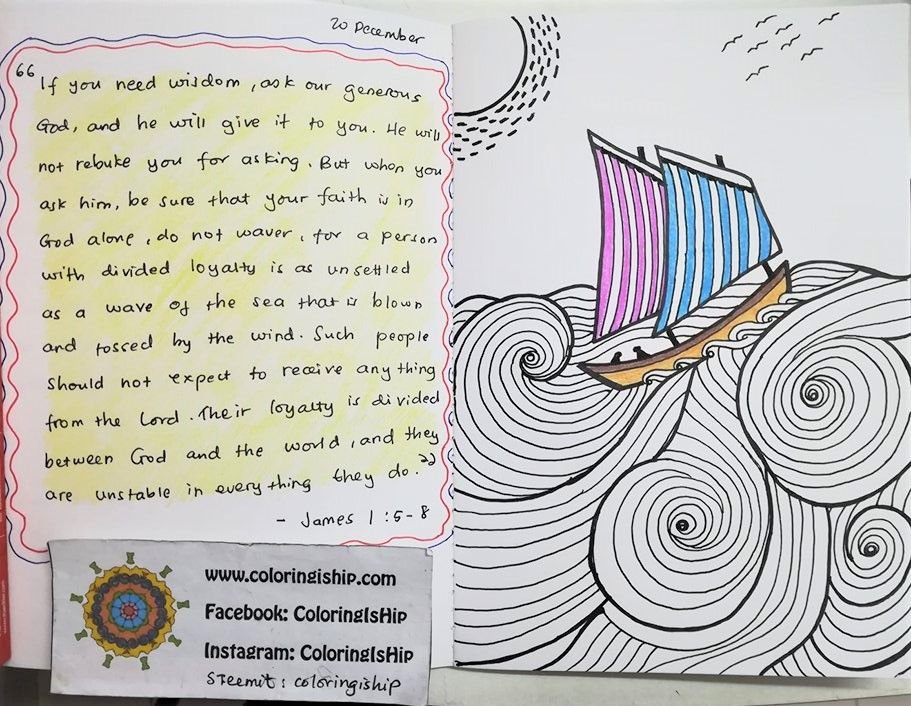 20 December
“If you need wisdom, ask our generous
God, and he will give it to you. He will
not rebuke you for asking. But when you
ask him, be sure that your faith is in
God alone, do not waver, for a person
with divided loyalty is as unsettled
as a wave of the sea that is blown
and tossed by the wind. Such people
should not expect to receive anything
from the Lord. Their loyalty is divided
between God and the world, and they
are unstable in everything they do.”
- James 1:5-8
www.coloringiship.com
Facebook: ColoringIsHip
Instagram: ColoringIsHip
Steemit: coloringiship